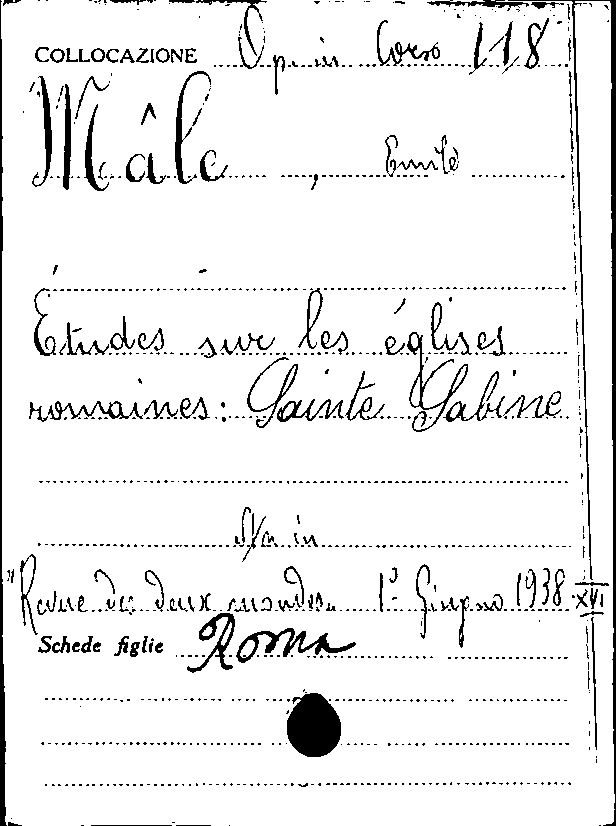 COLLOCAZIONE Op. in Corso 118
Mâle, Emile
Études sur les églises
romaines: Sainte Sabine
in
"Revue des deux mondes" 1º Giugno 1938 XVI
Schede figlie Roma